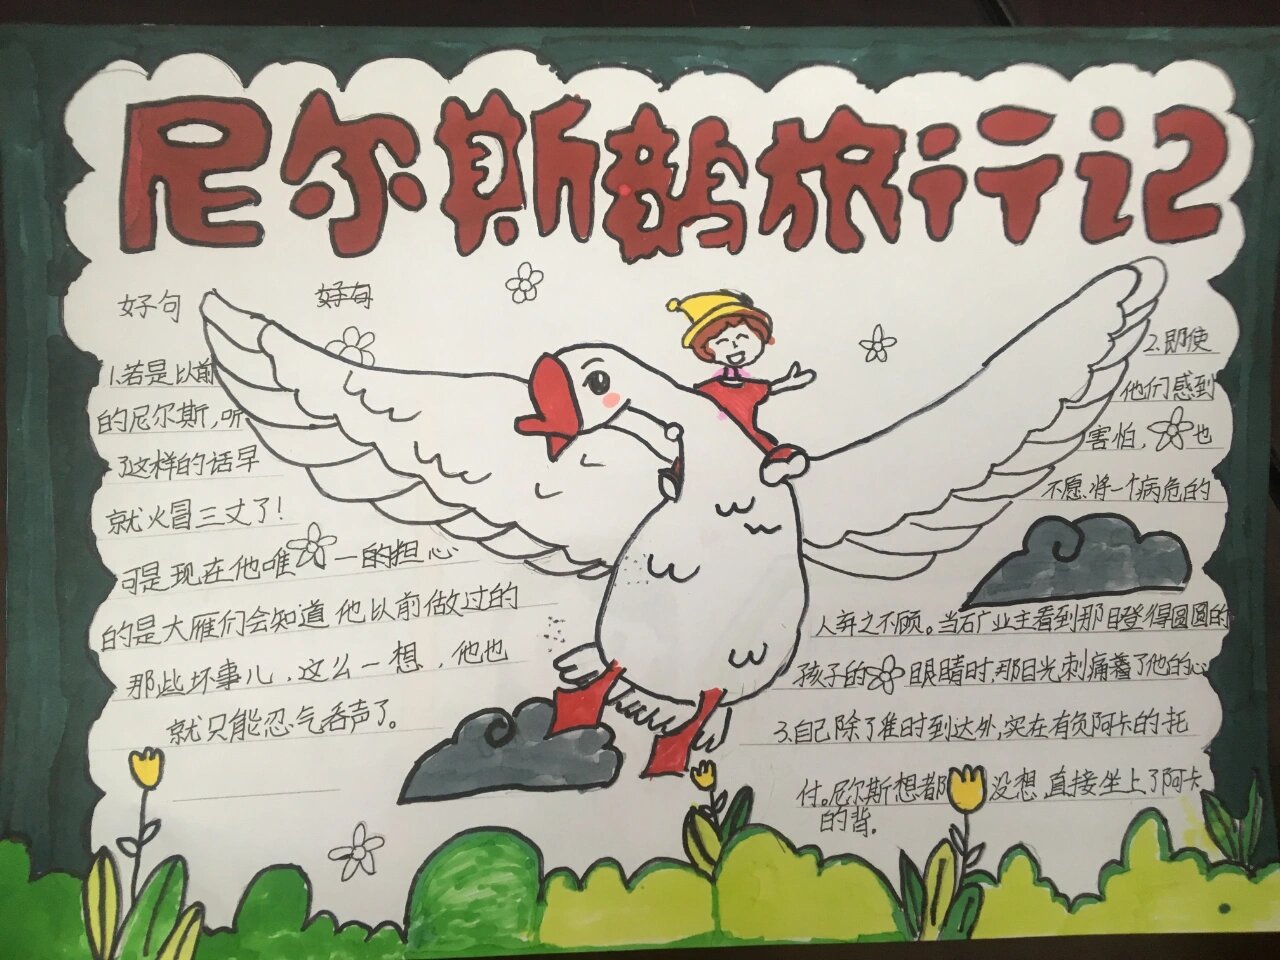 尼尔斯鹅旅行记
好句
好句
1.若是以前
的尼尔斯,听
了这样的话早
就火冒三丈了!
可是现在他唯一的担心
的是大雁们会知道他以前做过的
那些坏事儿,这么一想,他也
就只能忍气吞声了。
2.即使
他们感到
害怕,也
不愿将一个病危的
人弃之不顾。当矿业主看到那目瞪得圆圆的
孩子的眼睛时,那目光刺痛着了他的心
3.自己除了准时到达外,实在有负阿卡的托
付。尼尔斯想都没想,直接坐上了阿卡
的背.